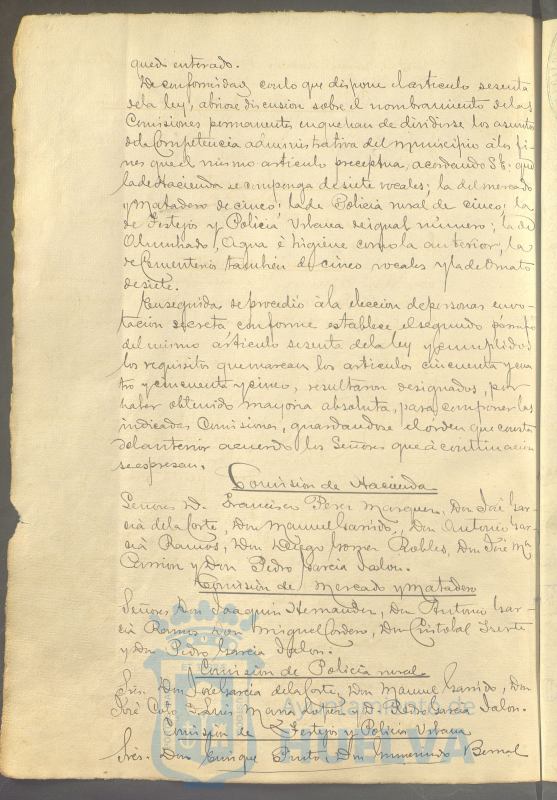 quedo enterado.
De conformidad con lo que dispone el articulo sesenta
de la ley, abriose discusion sobre el nombramiento de las
Comisiones permanentes en que han de dividirse los asuntos
de la Competencia administrativa del municipio á los fi-
nes que el mismo articulo preceptua, acordando S.E. que
la de Hacienda se componga de siete vocales; la del mercado
y Matadero de cinco; la de Policia rural de cinco; la
de Festejos y Policia Urbana de igual número; la de
Alumbrado, Agua é higiene como la anterior, la
de Cementerios tambien de cinco vocales y la de Ornato
de siete.
Enseguida se procedió á la eleccion de personas en vo-
tación secreta conforme establece el segundo párrafo
del mismo articulo sesenta de la ley y cumplidos
los requisitos que marcan los articulos cincuenta y cua-
tro y cincuenta y cinco, resultaron designados, por
haber obtenido mayoria absoluta, para componer las
indicadas Comisiones, guardandose el orden que consta
del anterior acuerdo los Señores que á continuacion
se expresan.
Comisión de Hacienda
Señores D. Francisco Perez Marquez, Don José Gar-
cia de la Corte, Don Manuel Garrido, Don Antonio Gar-
cia Ramos, Don Diego Gomez Robles, Don José Mª
y Don Pedro Garcia Jalon.
Comisión de Mercado y Matadero
Señores Don Joaquin Hernandez, Don Antonio Gar-
cia Ramos Don Miguel Cordero, Don Cristobal
y Don Pedro Garcia Jalon.
Comision de Policia rural
Sres. Don José Garcia de la Corte, Don Manuel Garrido, Don
José Luis Maria Lopez y D. Pedro Garcia Jalon.
Comisión de Festejos y Policia Urbana
Sres. Don Enrique Don Bernal
Ayuntamiento de
HUELVA